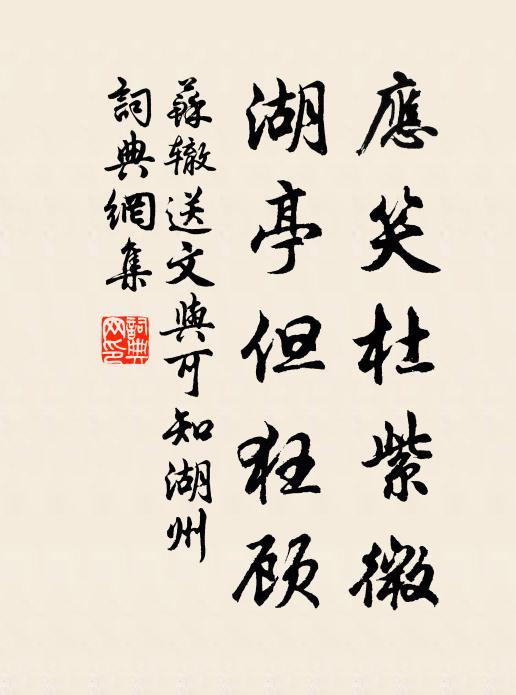 應笑杜紫微
湖亭但狂顾
蘇辙送文與可知湖州
詞典網集
詞典网印